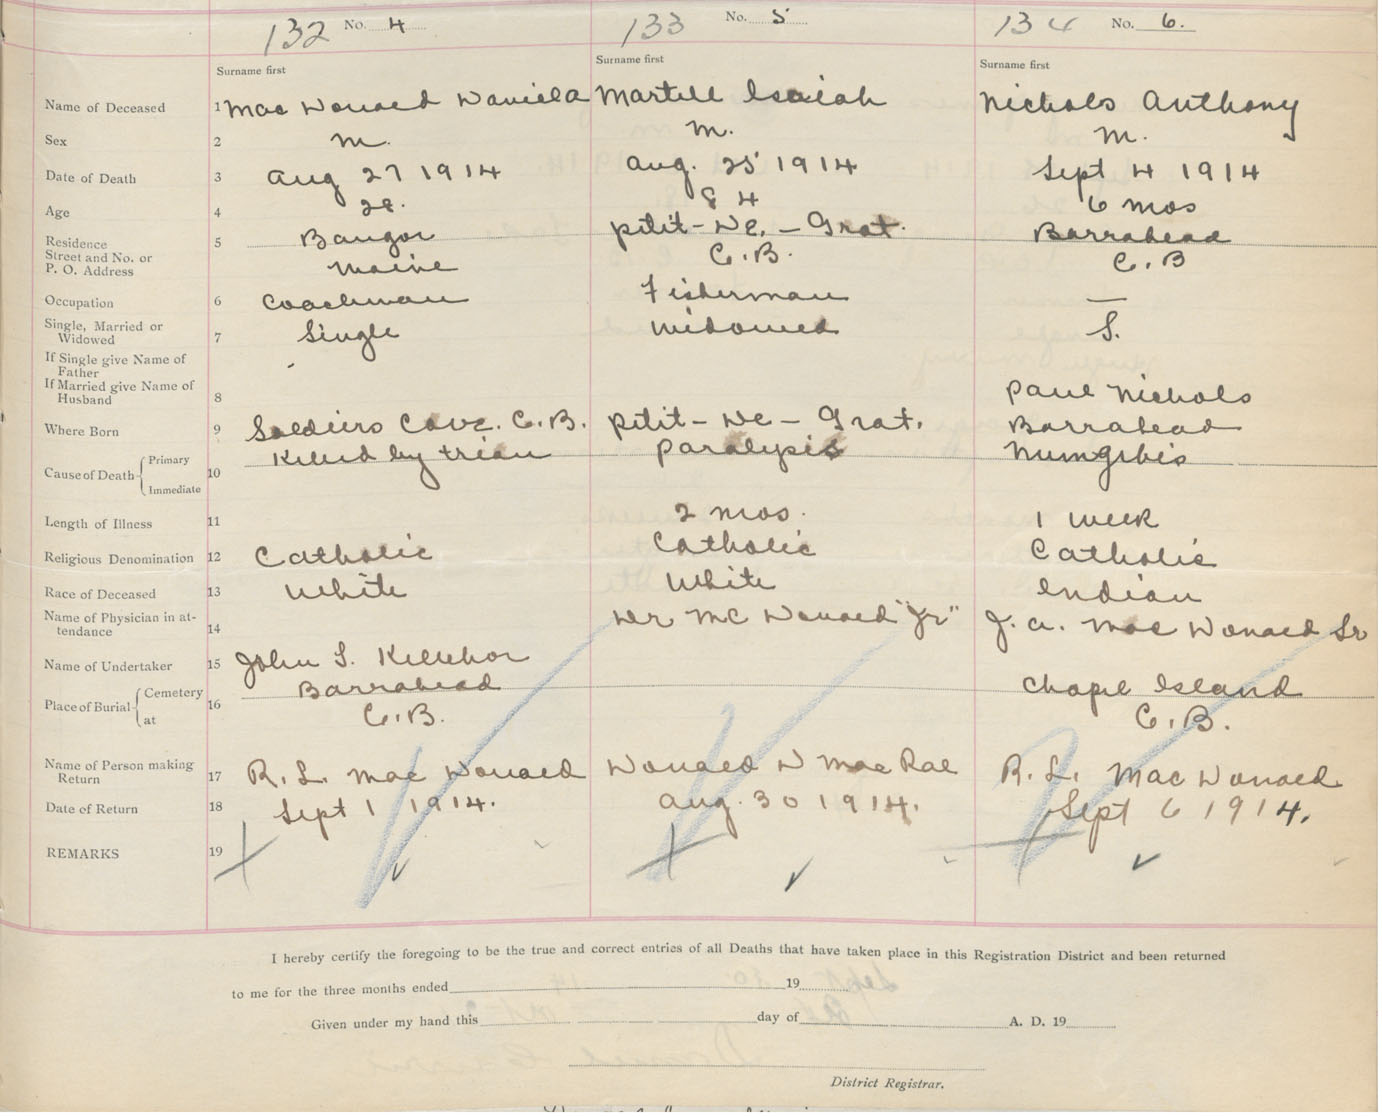 132 No. 4
133 No. 5
134 No. 6.
Surname first
Surname first
Surname first
Name of Deceased 1 Mac Donald Daniel A Martell Isaiah Nichols Anthony
Sex 2 M. M. M.
Date of Death 3 Aug 27 1914 Aug. 25 1914 Sept 4 1914
Age 4 28. 84 6 mos
Residence 5 Bangor Petit-De.-Grat. Barrahead
Street and No. or
P. O. Address Maine C.B. C.B
Occupation 6 Coachman Fisherman —
Single, Married or
Widowed 7 Single Widowed S.
If Single give Name of
Father
If Married give Name of
Husband 8 Paul Nichols
Where Born 9 Soldiers Cove. C.B. Petit-De-Grat. Barrahead
Cause of Death Primary 10 Killed by trian Paralysis
Immediate
Length of Illness 11 2 mos. 1 week
Religious Denomination 12 Catholic Catholic Catholic
Race of Deceased 13 White White Indian
Name of Physician in at-
tendance 14 Dr Mc Donald "Jr" J. A. Mac Donald Sr
Name of Undertaker 15 John S.
Place of Burial Cemetery 16 Barrahead Chapel Island
at C.B. C.B.
Name of Person making
Return 17 R. L. Mac Donald Donald D MacRae R. L. Mac Donald
Date of Return 18 Sept 1 1914. Aug. 30 1914. Sept 6 1914.
REMARKS 19
I hereby certify the foregoing to be the true and correct entries of all Deaths that have taken place in this Registration District and been returned
to me for the three months ended 19
Given under my hand this day of A. D. 19
District Registrar.